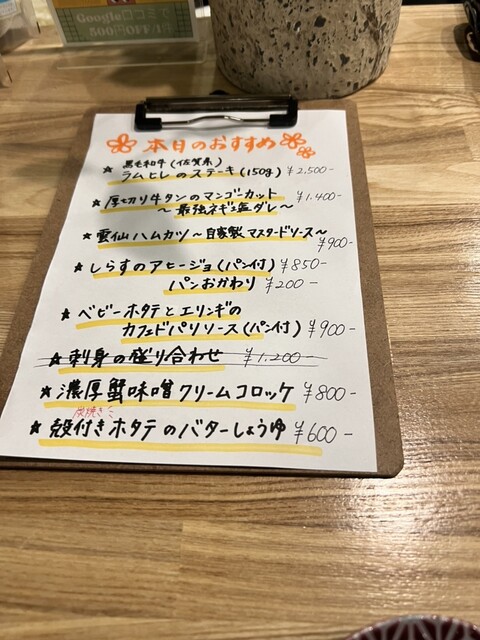 Google口コミで
500円OFF!
本日のおすすめ
黒毛和牛(佐賀県)
★ラムヒレのステーキ(150g) ¥2,500-
★厚切り牛タンのマンゴーカット ¥1,400-
～最強ネギ塩ダレ～
★雲仙ハムカツ～自家製マスタードソース～
¥900-
★しらすのアヒージョ(パン付) ¥850-
パンおかわり ¥200-
★ベビーホタテとエリンギの
カフェドパリソース(パン付) ¥900-
★刺身の盛り合わせ ¥1,200-
★濃厚蟹味噌クリームコロッケ ¥800-
炭焼き
★殻付きホタテのバターしょうゆ ¥600-